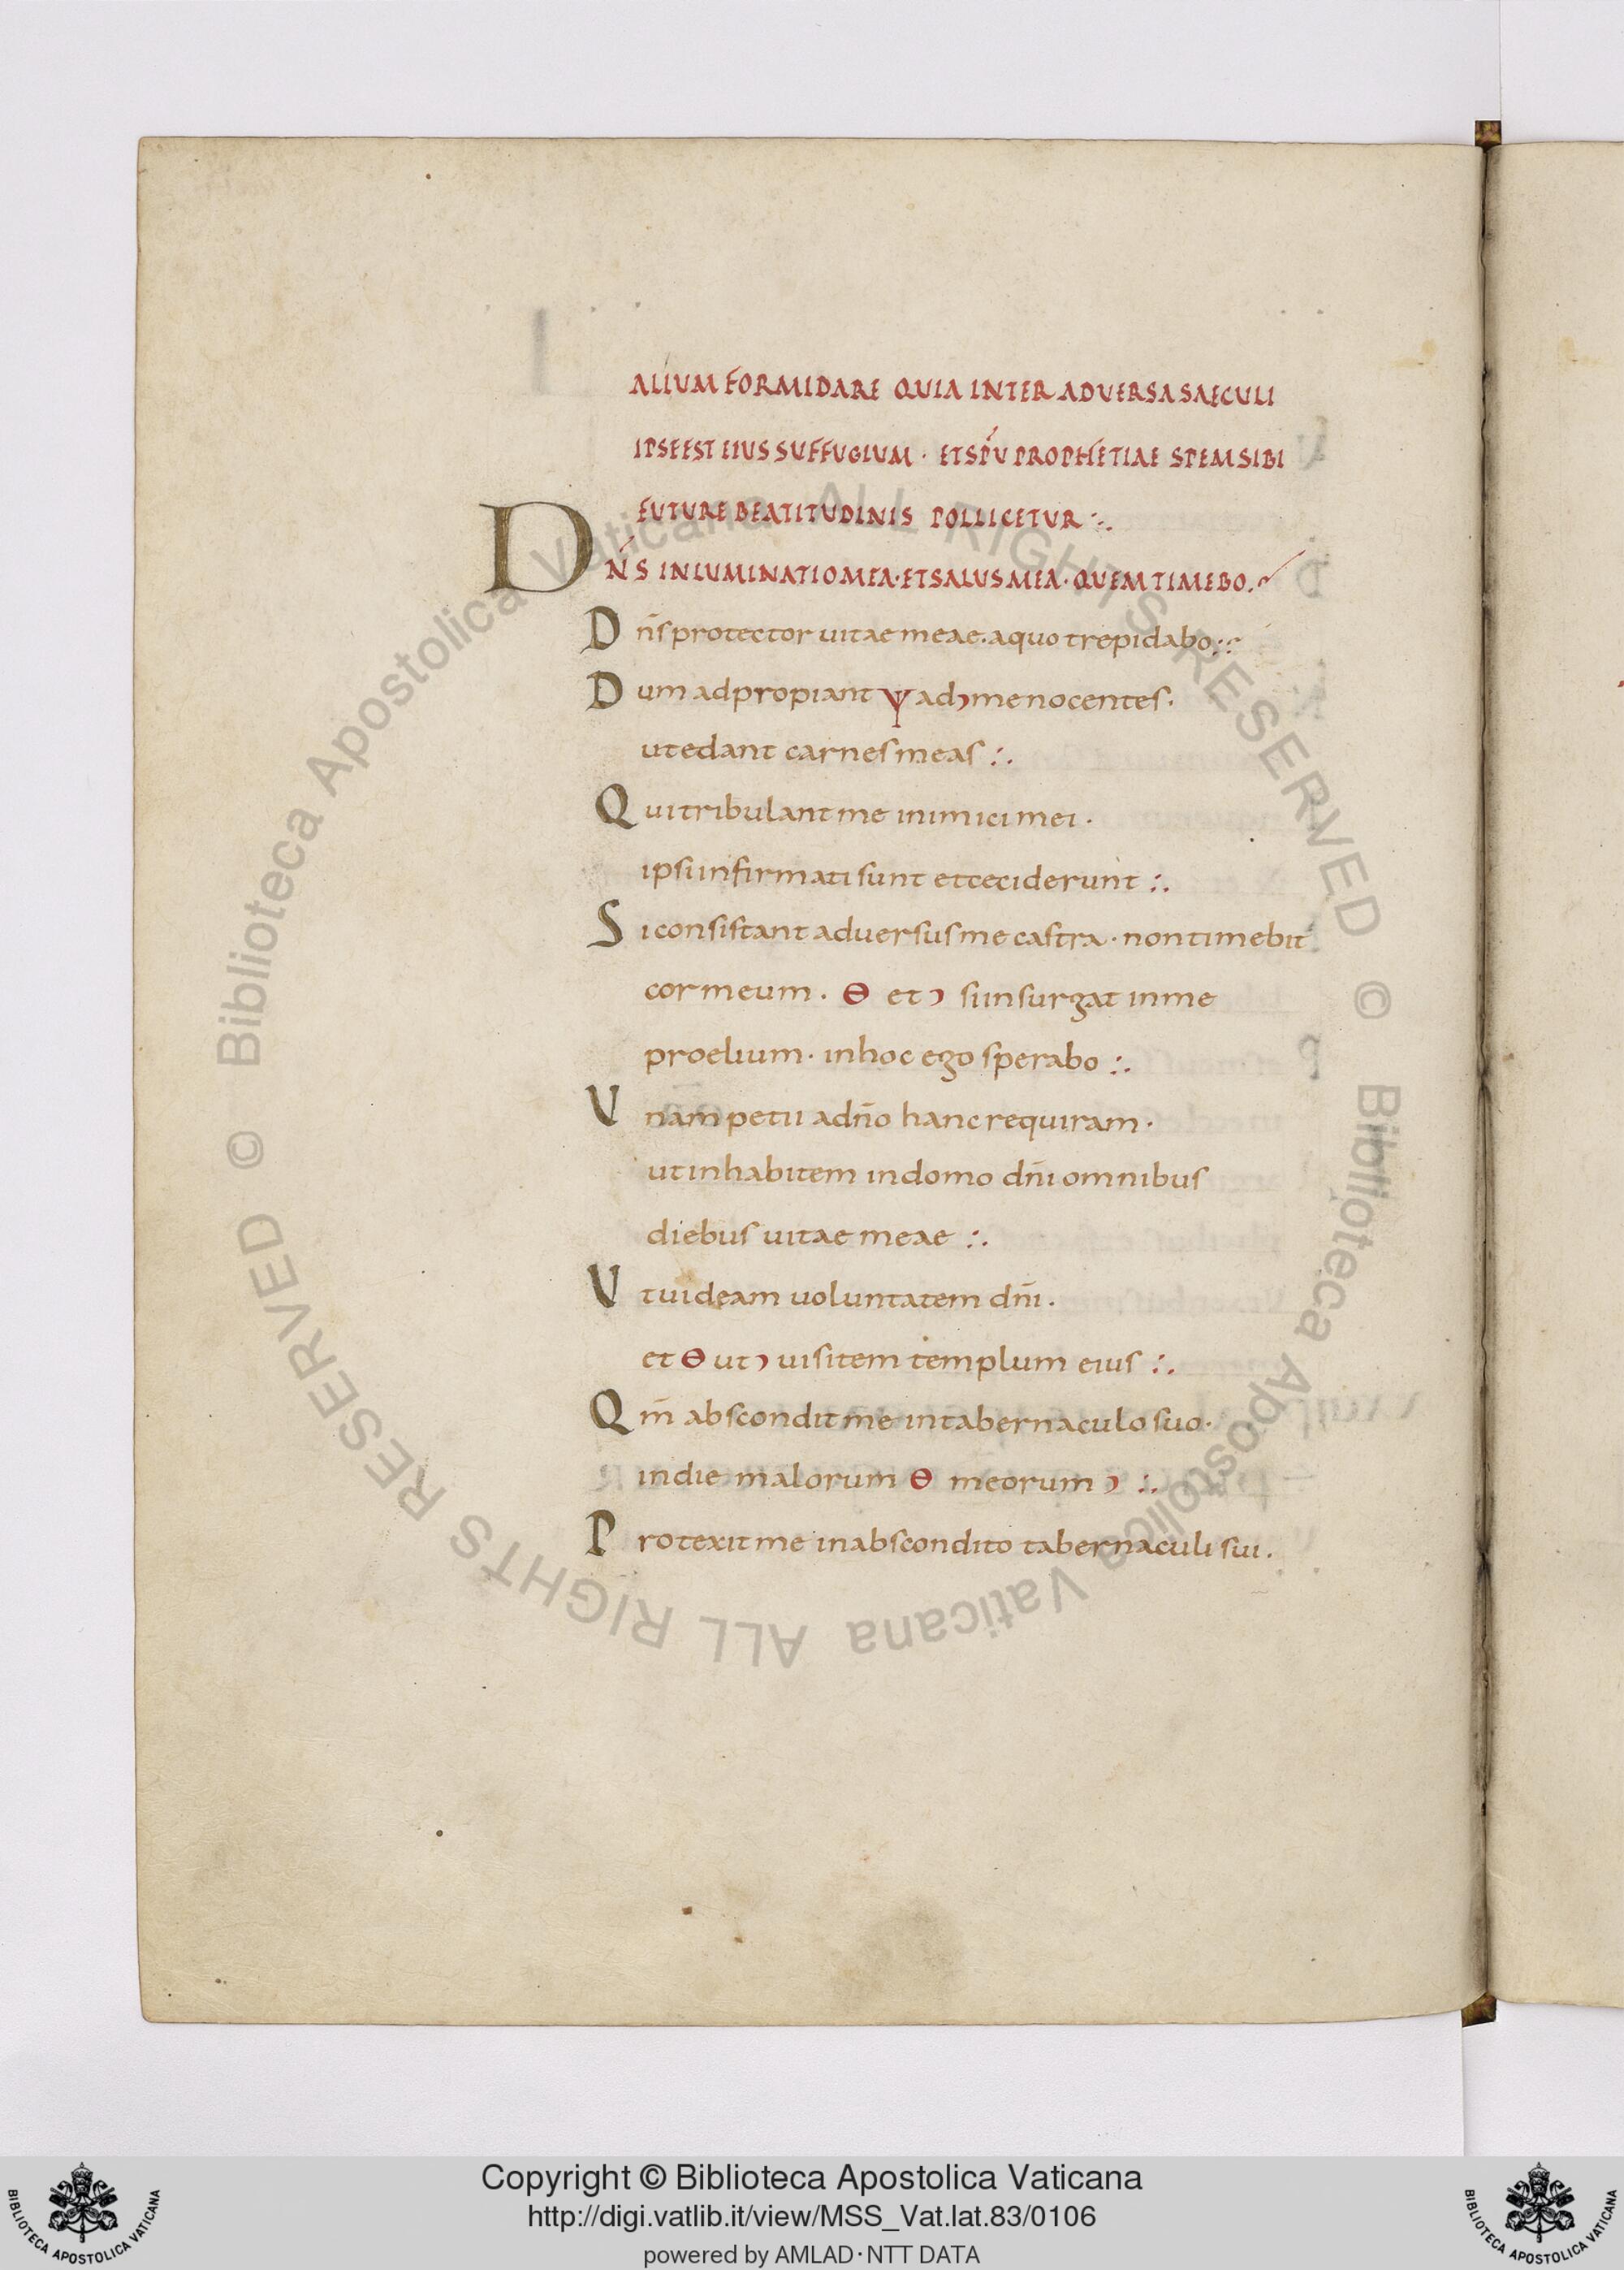 ALIUM FORMIDARE QUIA INTER ADVERSA SAECULI
IPSE EST EIUS SUFFUGIUM · ET SPU PROPHETIAE SPEM SIBI
FUTURE BEATITUDINIS POLLICETUR :.
DN̄S INLUMINATIO MEA · ET SALUS MEA · QUEM TIMEBO.
Dn̄s protector uitae meae. a quo trepidabo :.
Dum adpropiant Ψ ad ͻ me nocentes.
ut edant carnes meas :.
Qui tribulant me inimici mei.
ipsi infirmati sunt et ceciderunt :.
Si consistant aduersus me castra · non timebit
cor meum. Θ et ͻ si insurgat in me
proelium · in hoc ego sperabo :.
Vnam petii a dn̄o hanc requiram.
ut inhabitem in domo dn̄i omnibus
diebus uitae meae :.
Vt uideam uoluntatem dn̄i.
et Θ ut ͻ uisitem templum eius :.
Qm̄ abscondit me in tabernaculo suo.
in die malorum Θ meorum ͻ :.
Protexit me in abscondito tabernaculi sui.
© Biblioteca Apostolica Vaticana ALL RIGHTS RESERVED
© Biblioteca Apostolica Vaticana ALL RIGHTS RESERVED
Copyright © Biblioteca Apostolica Vaticana
http://digi.vatlib.it/view/MSS_Vat.lat.83/0106
powered by AMLAD·NTT DATA
BIBLIOTECA APOSTOLICA VATICANA
BIBLIOTECA APOSTOLICA VATICANA